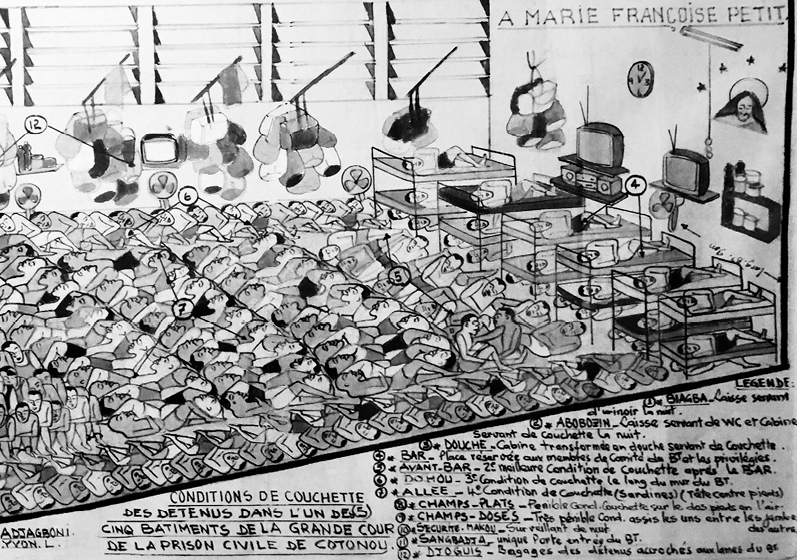 A MARIE FRANÇOISE PETIT
12
6
4
5
7
Long. 8. 9m
LEGENDE:
1* BIAGBA_Caisse servant
d'urinoir la nuit.
2* ABOBOZIN_Caisse servant de WC et Cabine
Servant de Couchette la nuit.
3* DOUCHE_Cabine transformée en douche servant de Couchette.
4* BAR_Place reservée aux membres de Comité du Bt et les privilégiés.
5* AVANT-BAR_2e meilleure Condition de Couchette après le BAR.
6* DOHOU_3e Condition de couchette le long du mur du BT.
7* ALLEE_4e Condition de Couchette (Sardines) (Tête contre pieds)
8* CHAMPS-PLATS_Penible Cond. Couchette sur le dos pieds en l'air.
9* CHAMPS-DOSES_Très pénible Cond. assis les uns entre les jambes
des autres
10* SECURITE-MAKOU_Surveillant de nuit
11* SANGBADJA_unique Porte entrée du BT.
12* DJOGUIS_Bagages des détenus accrochés aux lames du Bt
CONDITIONS DE COUCHETTE
DES DETENUS DANS L'UN DES(5)
CINQ BATIMENTS DE LA GRANDE COUR
DE LA PRISON CIVILE DE COTONOU
ADJAGBONI.
YVON.L.